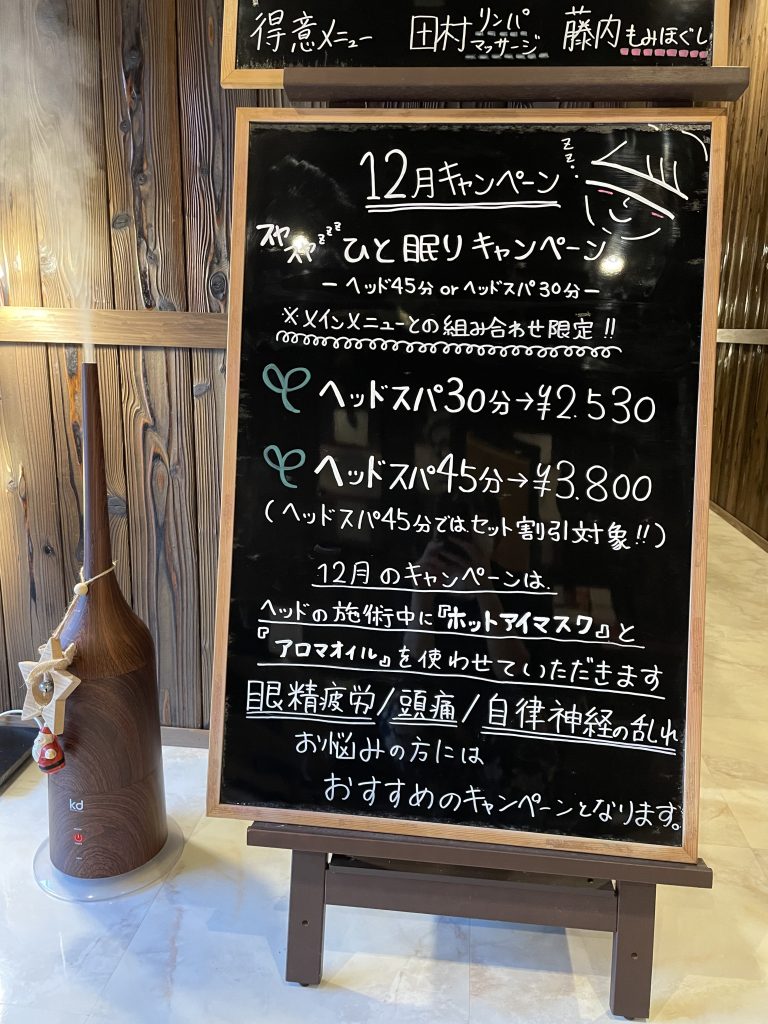 得意メニュー 田村 リンパマッサージ 藤内 もみほぐし
12月キャンペーン
zz
スヤスヤzzz ひと眠りキャンペーン
ー ヘッド45分 or ヘッドスパ30分 ー
※メインメニューとの組み合わせ限定!!
ヘッドスパ30分→¥2.530
ヘッドスパ45分→¥3.800
(ヘッドスパ45分ではセット割引対象!!)
12月のキャンペーンは、
ヘッドの施術中に『ホットアイマスク』と
『アロマオイル』を使わせていただきます
眼精疲労/頭痛/自律神経の乱れ
お悩みの方には
おすすめのキャンペーンとなります。
kd